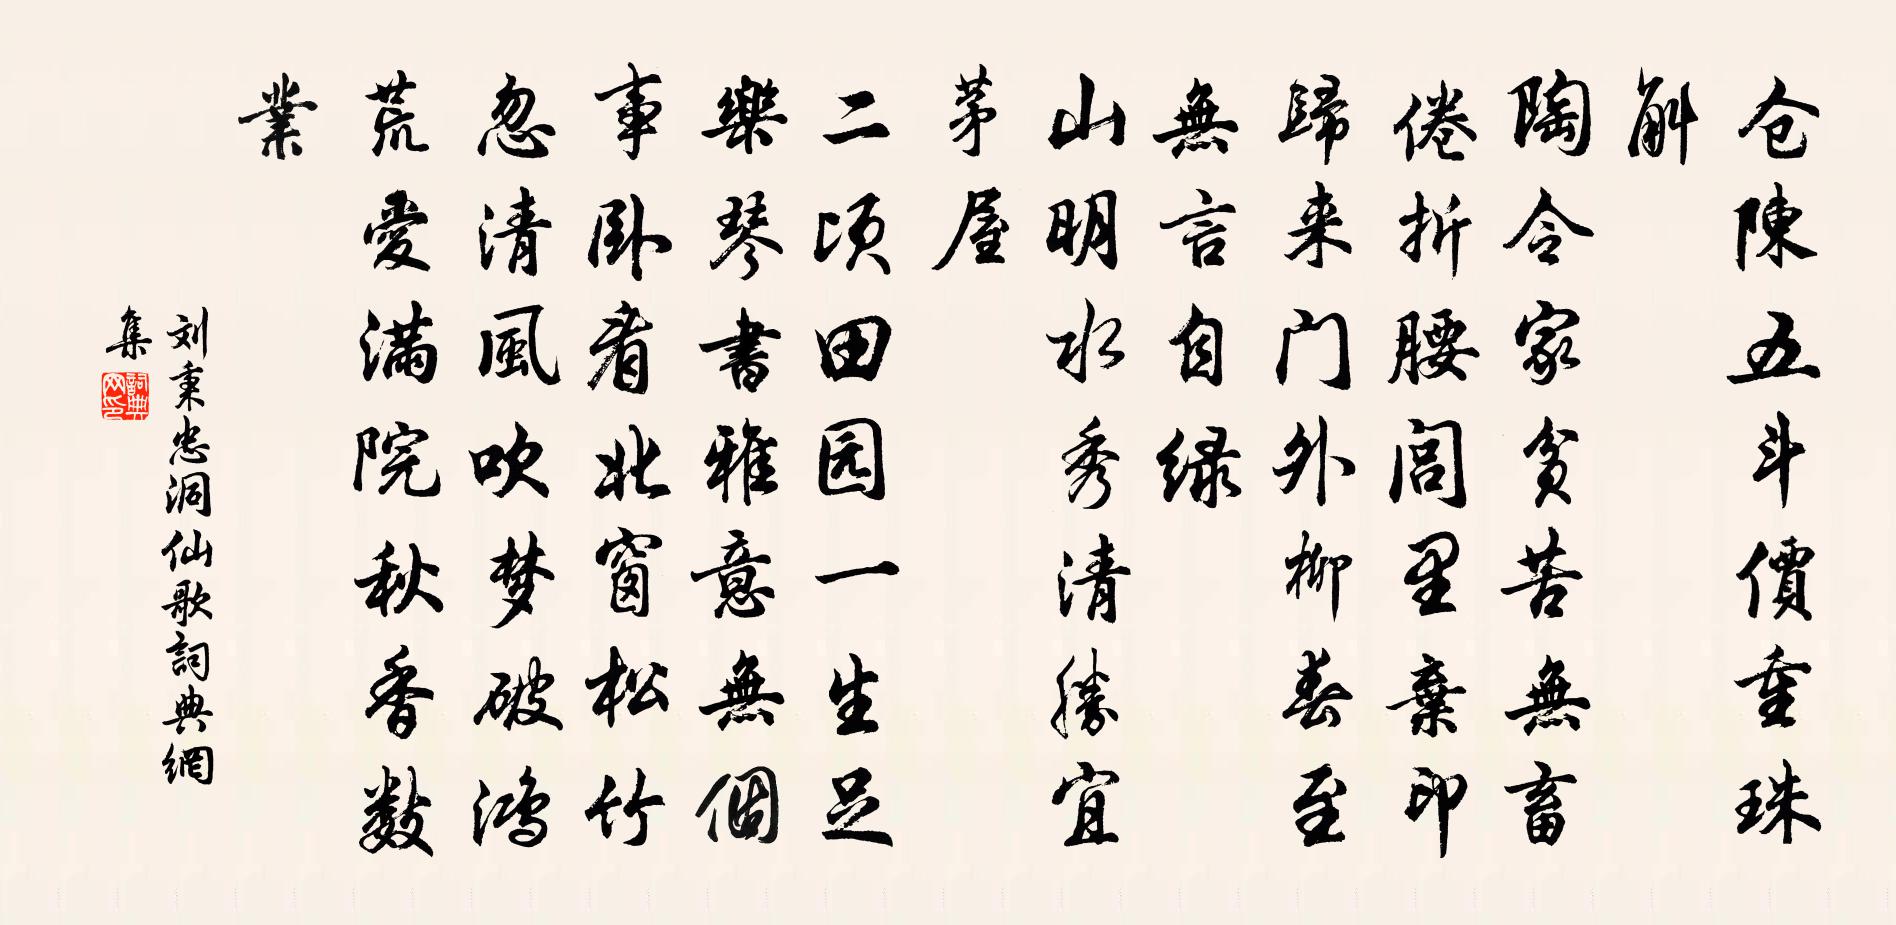 仓陳五斗價重珠
斛
陶令家貧苦無畜
倦折腰閭里棄印
歸来门外柳春至
無言自绿
山明水秀清勝宜
茅屋
二顷田园一生足
樂琴書雅意無個
事卧看北窗松竹
忽清風吹梦破鸿
荒愛满院秋香數
業
刘秉忠洞仙歌詞典網
集
詞典网印